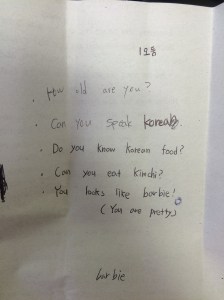 1모둠
· How old are you?
· Can you speak Korean?
· Do you know korean food?
· Can you eat Kimchi?
· You looks like barbie!
(You are pretty)
barbie